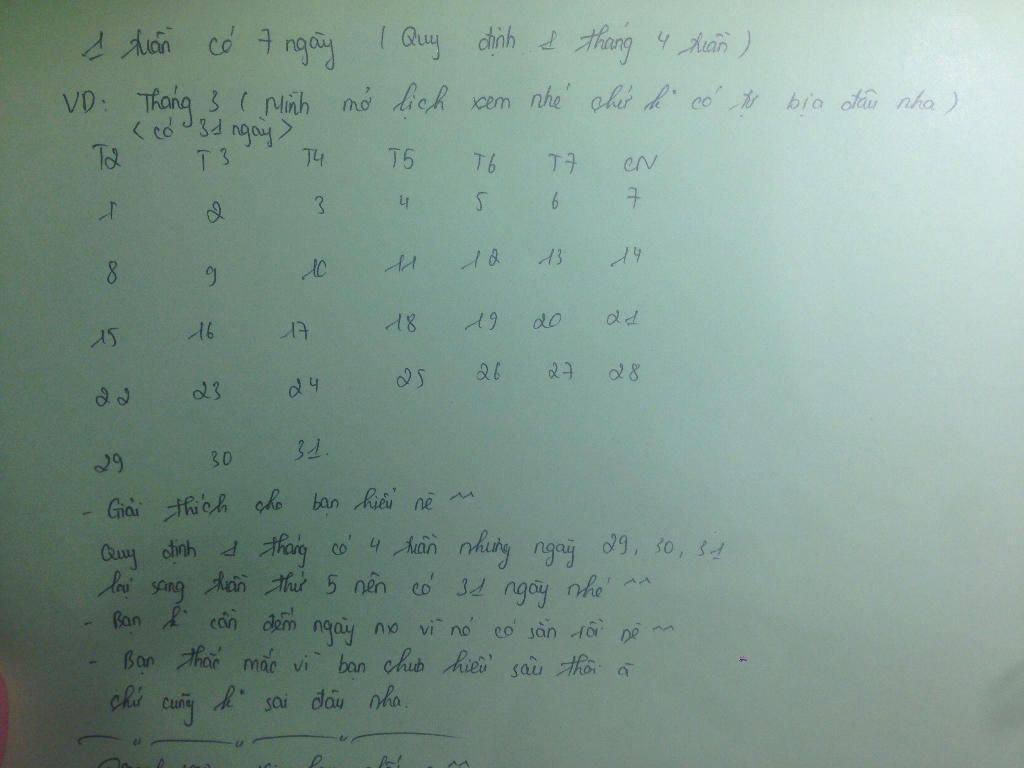 1 tuần có 7 ngày ( Quy định 1 tháng 4 tuần )
VD: Tháng 3 ( Mình mở lịch xem nhé chứ k° có tự bịa đâu nha )
< có 31 ngày >
T2 T3 T4 T5 T6 T7 CN
1 2 3 4 5 6 7
8 9 10 11 12 13 14
15 16 17 18 19 20 21
22 23 24 25 26 27 28
29 30 31.
- Giải thích cho bạn hiểu nè ^^
Quy định 1 tháng có 4 tuần nhưng ngày 29, 30, 31
lại sang tuần thứ 5 nên có 31 ngày nhé ^^
- Bạn k° cần đếm ngày no vì nó có sẵn rồi nè ~
- Bạn thắc mắc vì bạn chưa hiểu sâu thôi à
chứ cũng k° sai đâu nha.